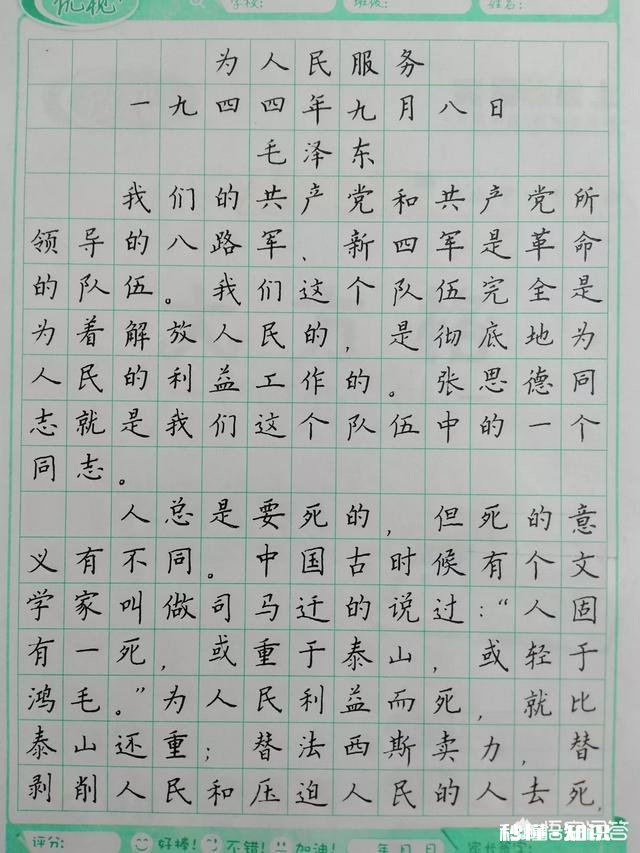 学校:
班级:
姓名:
为人民服务
一九四四年九月八日
毛泽东
我们的共产党和共产党所
领导的八路军、新四军是革命
的队伍。我们这个队伍完全是
为着解放人民的，是彻底地为
人民的利益工作的。张思德同
志就是我们这个队伍中的一个
同志。
人总是要死的，但死的意
义有不同。中国古时候有个文
学家叫做司马迁的说过：“人固
有一死，或重于泰山，或轻于
鸿毛。”为人民利益而死，就比
泰山还重；替法西斯卖力，替
剥削人民和压迫人民的人去死，
评分:
好棒!
不错!
加油!
年 月 日